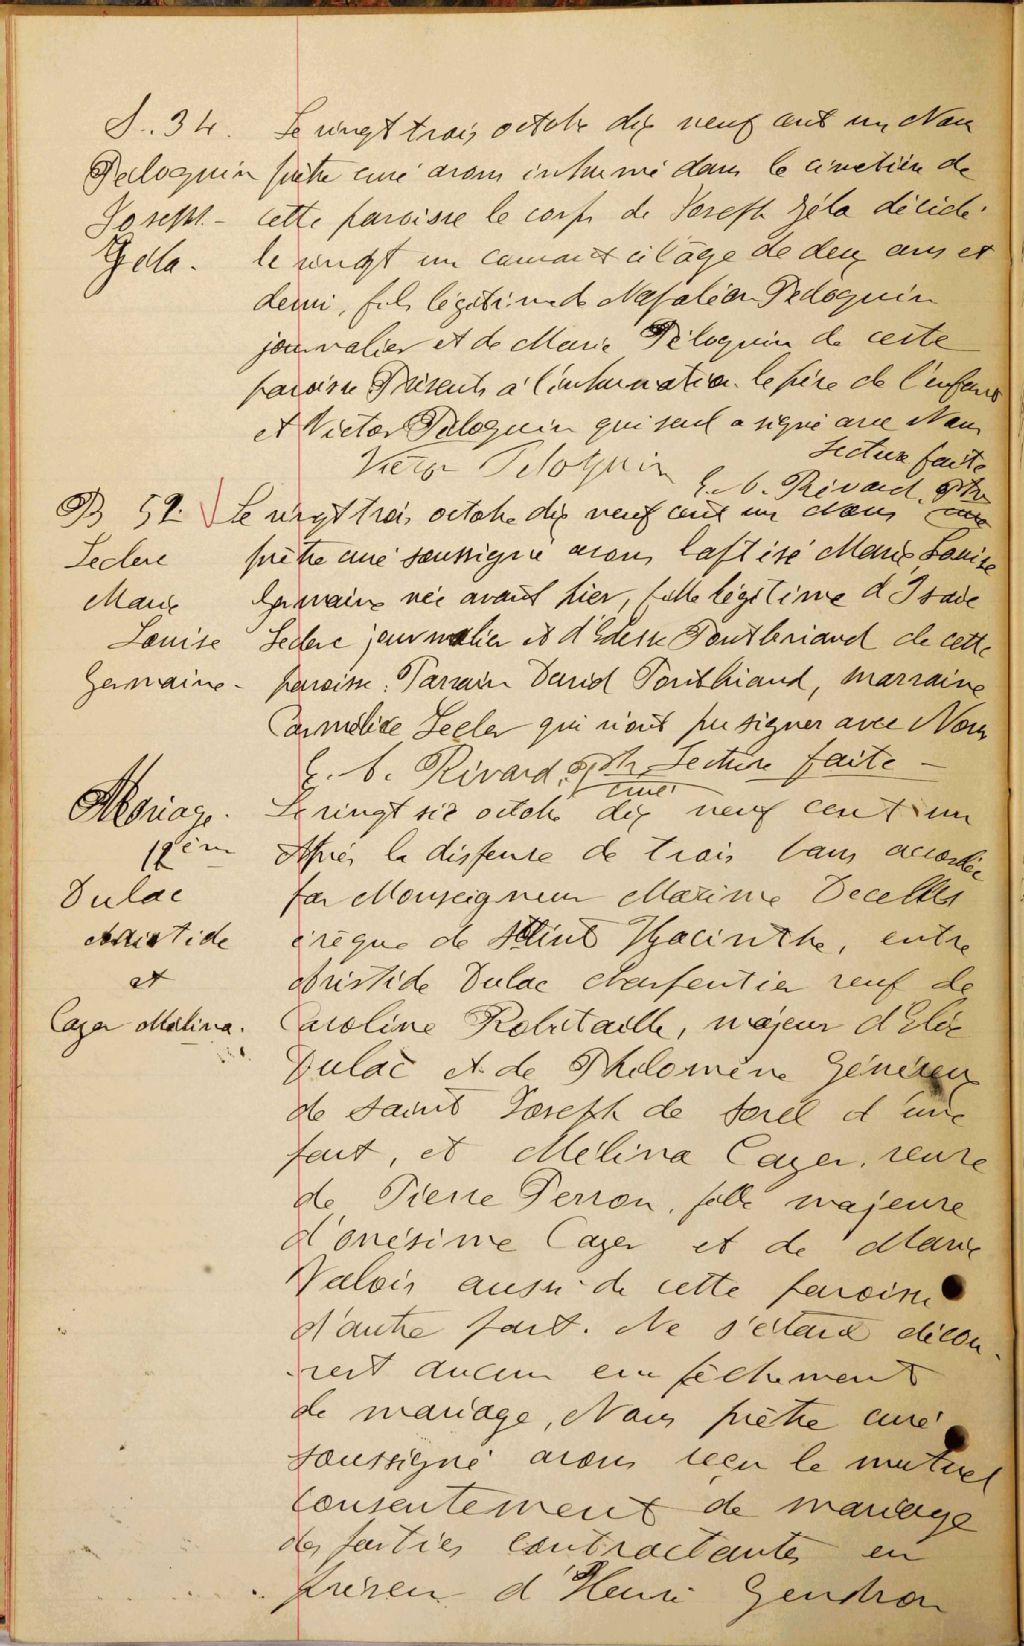 S. 34.
Péloquin
Joseph -
Géla.
Le vingt trois octobre dix neuf cent un Nous
prêtre curé avons inhumé dans le cimetière de
cette paroisse le corps de Joseph Géla décédé
le vingt un courant à l'âge de deux ans et
demi, fils légitime de Napoléon Péloquin
journalier et de Marie Péloquin de cette
paroisse Présents à l'inhumation le père de l'enfant
et Victor Péloquin qui seul a signé avec Nous
Lecture faite
Victor Péloquin
E. A. Rivard, ptre
curé
B 52.
Leclerc
Marie
Louise
Germaine -
Le vingt trois octobre dix neuf cent un Nous
prêtre curé soussigné avons baptisé Marie Louise
Germaine née avant hier, fille légitime d'Isaïe
Leclerc journalier et d'Edesse Pontbriand de cette
paroisse. Parrain David Pontbriand, marraine
Carmélice Lecler qui n'ont pu signer avec Nous
E. A. Rivard, ptre Lecture faite -
curé
Mariage.
12ème
Dulac
Aristide
et
Cayer Mélina.
Le vingt six octobre dix neuf cent un
Après la dispense de trois bans accordée
par Monseigneur Maxime Decelles
évêque de Saint Hyacinthe, entre
Aristide Dulac charpentier veuf de
Caroline Robitaille, majeur d'Elie
Dulac et de Philomène Généreux
de saint Joseph de Sorel d'une
part, et Mélina Cayer, veuve
de Pierre Perron, fille majeure
d'onésime Cayer et de Marie
Valois aussi de cette paroisse
d'autre part. Ne s'étant décou-
vert aucun empêchement
de mariage, Nous prêtre curé
soussigné avons reçu le mutuel
consentement de mariage
des parties contractantes en
présence d'Henri Gendron